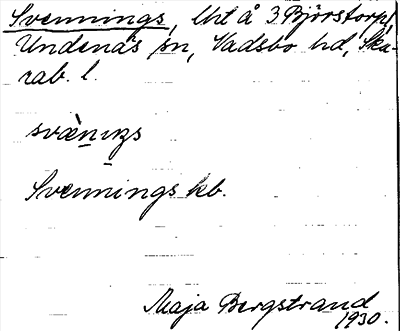 Svennings, Uht å 3 Björstorp,
Undenäs sn, Vadsbo hd, Ska-
rab. l.
svænıŋs
Svennings kb.
Maja Bergstrand
1930.